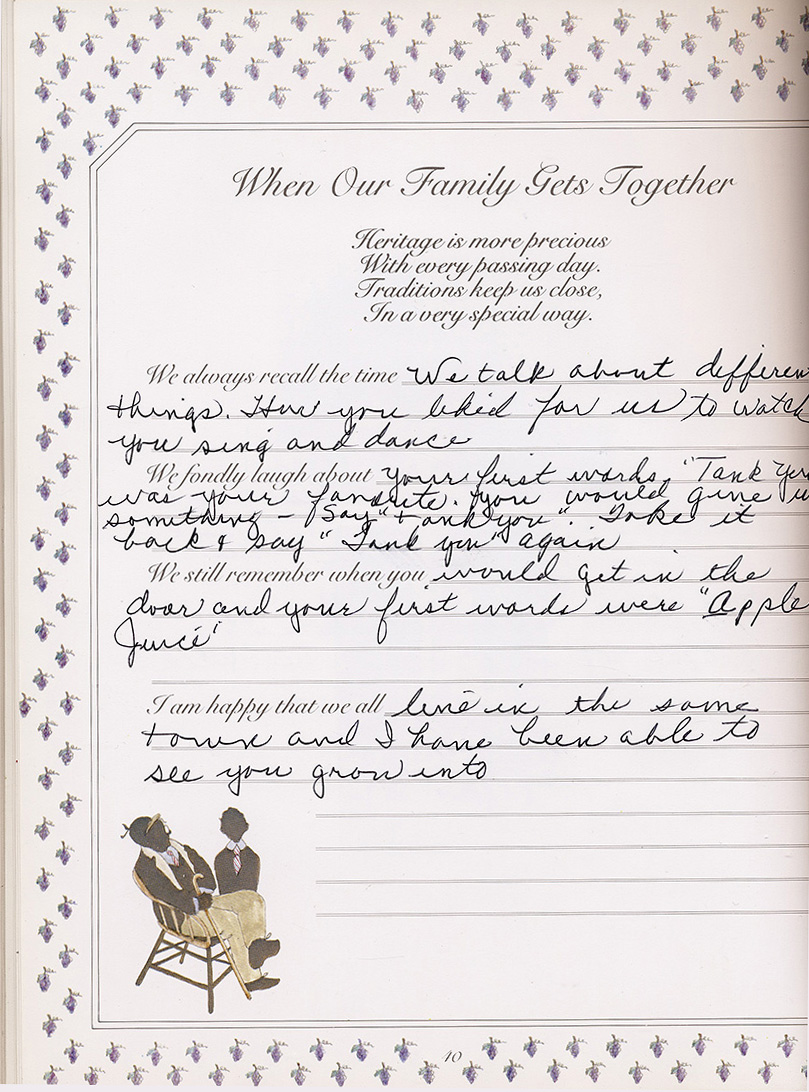 When Our Family Gets Together
Heritage is more precious
With every passing day.
Traditions keep us close,
In a very special way.
We always recall the time We talk about differen
things. How you liked for us to watch
you sing and dance
We fondly laugh about your first words, "Tank You
was your favorite. You would give u
something - Say "Tank you". Take it
back & say "Tank you" again
We still remember when you would get in the
door and your first words were "Apple
Juice"
I am happy that we all live in the same
town and I have been able to
see you grow into
10